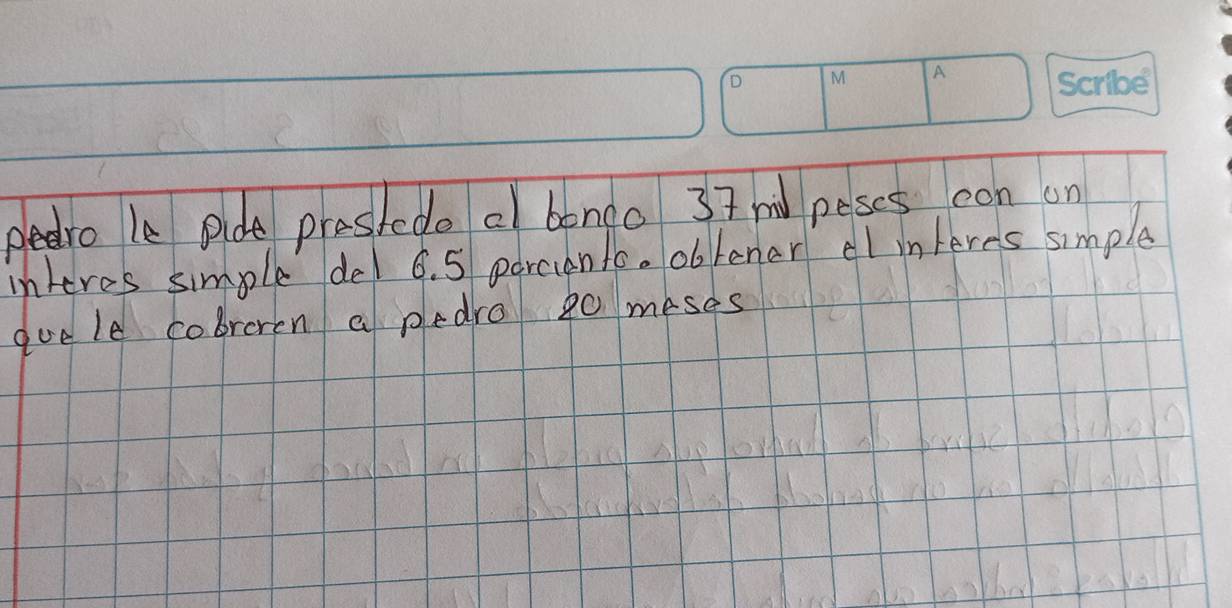 D M A Scribe
pedro le pide prestedo al bonco 37 mil peses con un
interes simple del 6.5 porciento. obtener el interes simple
que le cobreren a pedro 20 meses